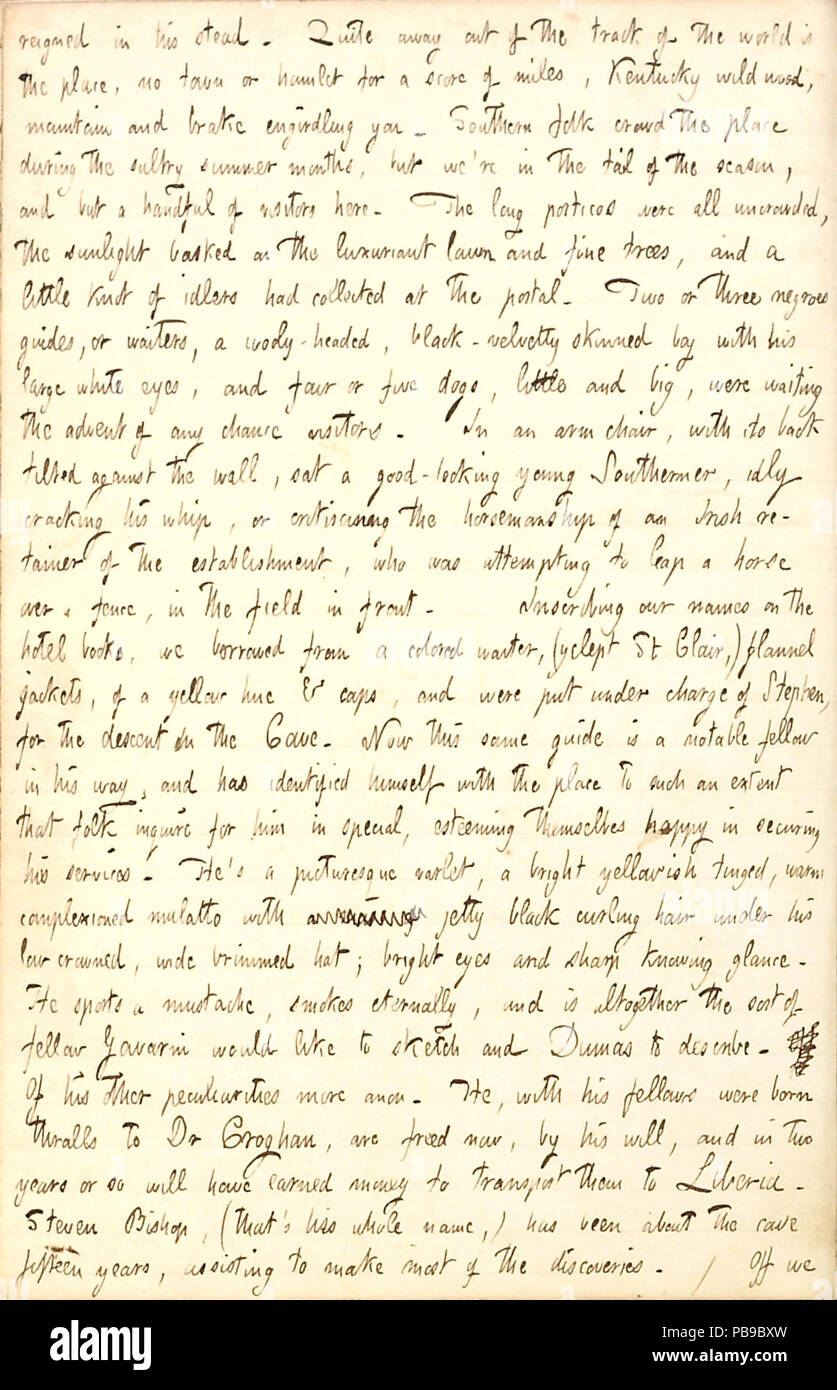 reigned in his stead. Quite away out of the track of the world is
the place, no town or hamlet for a score of miles, Kentucky wild wood,
mountain and brake engirdling you. Southern folk crowd the place
during the sultry summer months, but we're in the tail of the season,
and but a handful of visitors here. The long porticos were all uncrowded,
the sunlight basked on the luxuriant lawn and fine trees, and a
little knot of idlers had collected at the portal. Two or three negroes
guides, or waiters, a wooly-headed, black-velvetty skinned boy with his
large white eyes, and four or five dogs, little and big, were waiting
the advent of any chance visitors. In an arm chair, with its back
tilted against the wall, sat a good-looking young Southerner, idly
cracking his whip, or critiscising the horsemanship of an Irish re-
tainer of the establishment, who was attempting to leap a horse
over a fence, in the field in front. Inscribing our names on the
hotel books, we borrowed from a colored waiter, (yclept St Clair,) flannel
jackets, of a yellow hue & caps, and were put under charge of Stephen,
for the descent in the Cave. Now this same guide is a notable fellow
in his way, and has identified himself with the place to such an extent
that folk inquire for him in special, esteeming themselves happy in securing
his services. He's a picturesque varlet, a bright yellowish tinged, warm
complexioned mulatto with jetty black curling hair under his
low crowned, wide brimmed hat; bright eyes and sharp knowing glance.
He sports a mustache, smokes eternally, and is altogether the sort of
fellow Gavarni would like to sketch and Dumas to describe.
Of his other peculiarities more anon. He, with his fellows were born
thralls to Dr Croghan, are freed now, by his will, and in two
years or so will have earned money to transport them to Liberia.
Steven Bishop, (that's his whole name,) has been about the cave
fifteen years, assisting to make most of the discoveries. / Off we
alamy
Image ID: PB9BXW
www.alamy.com